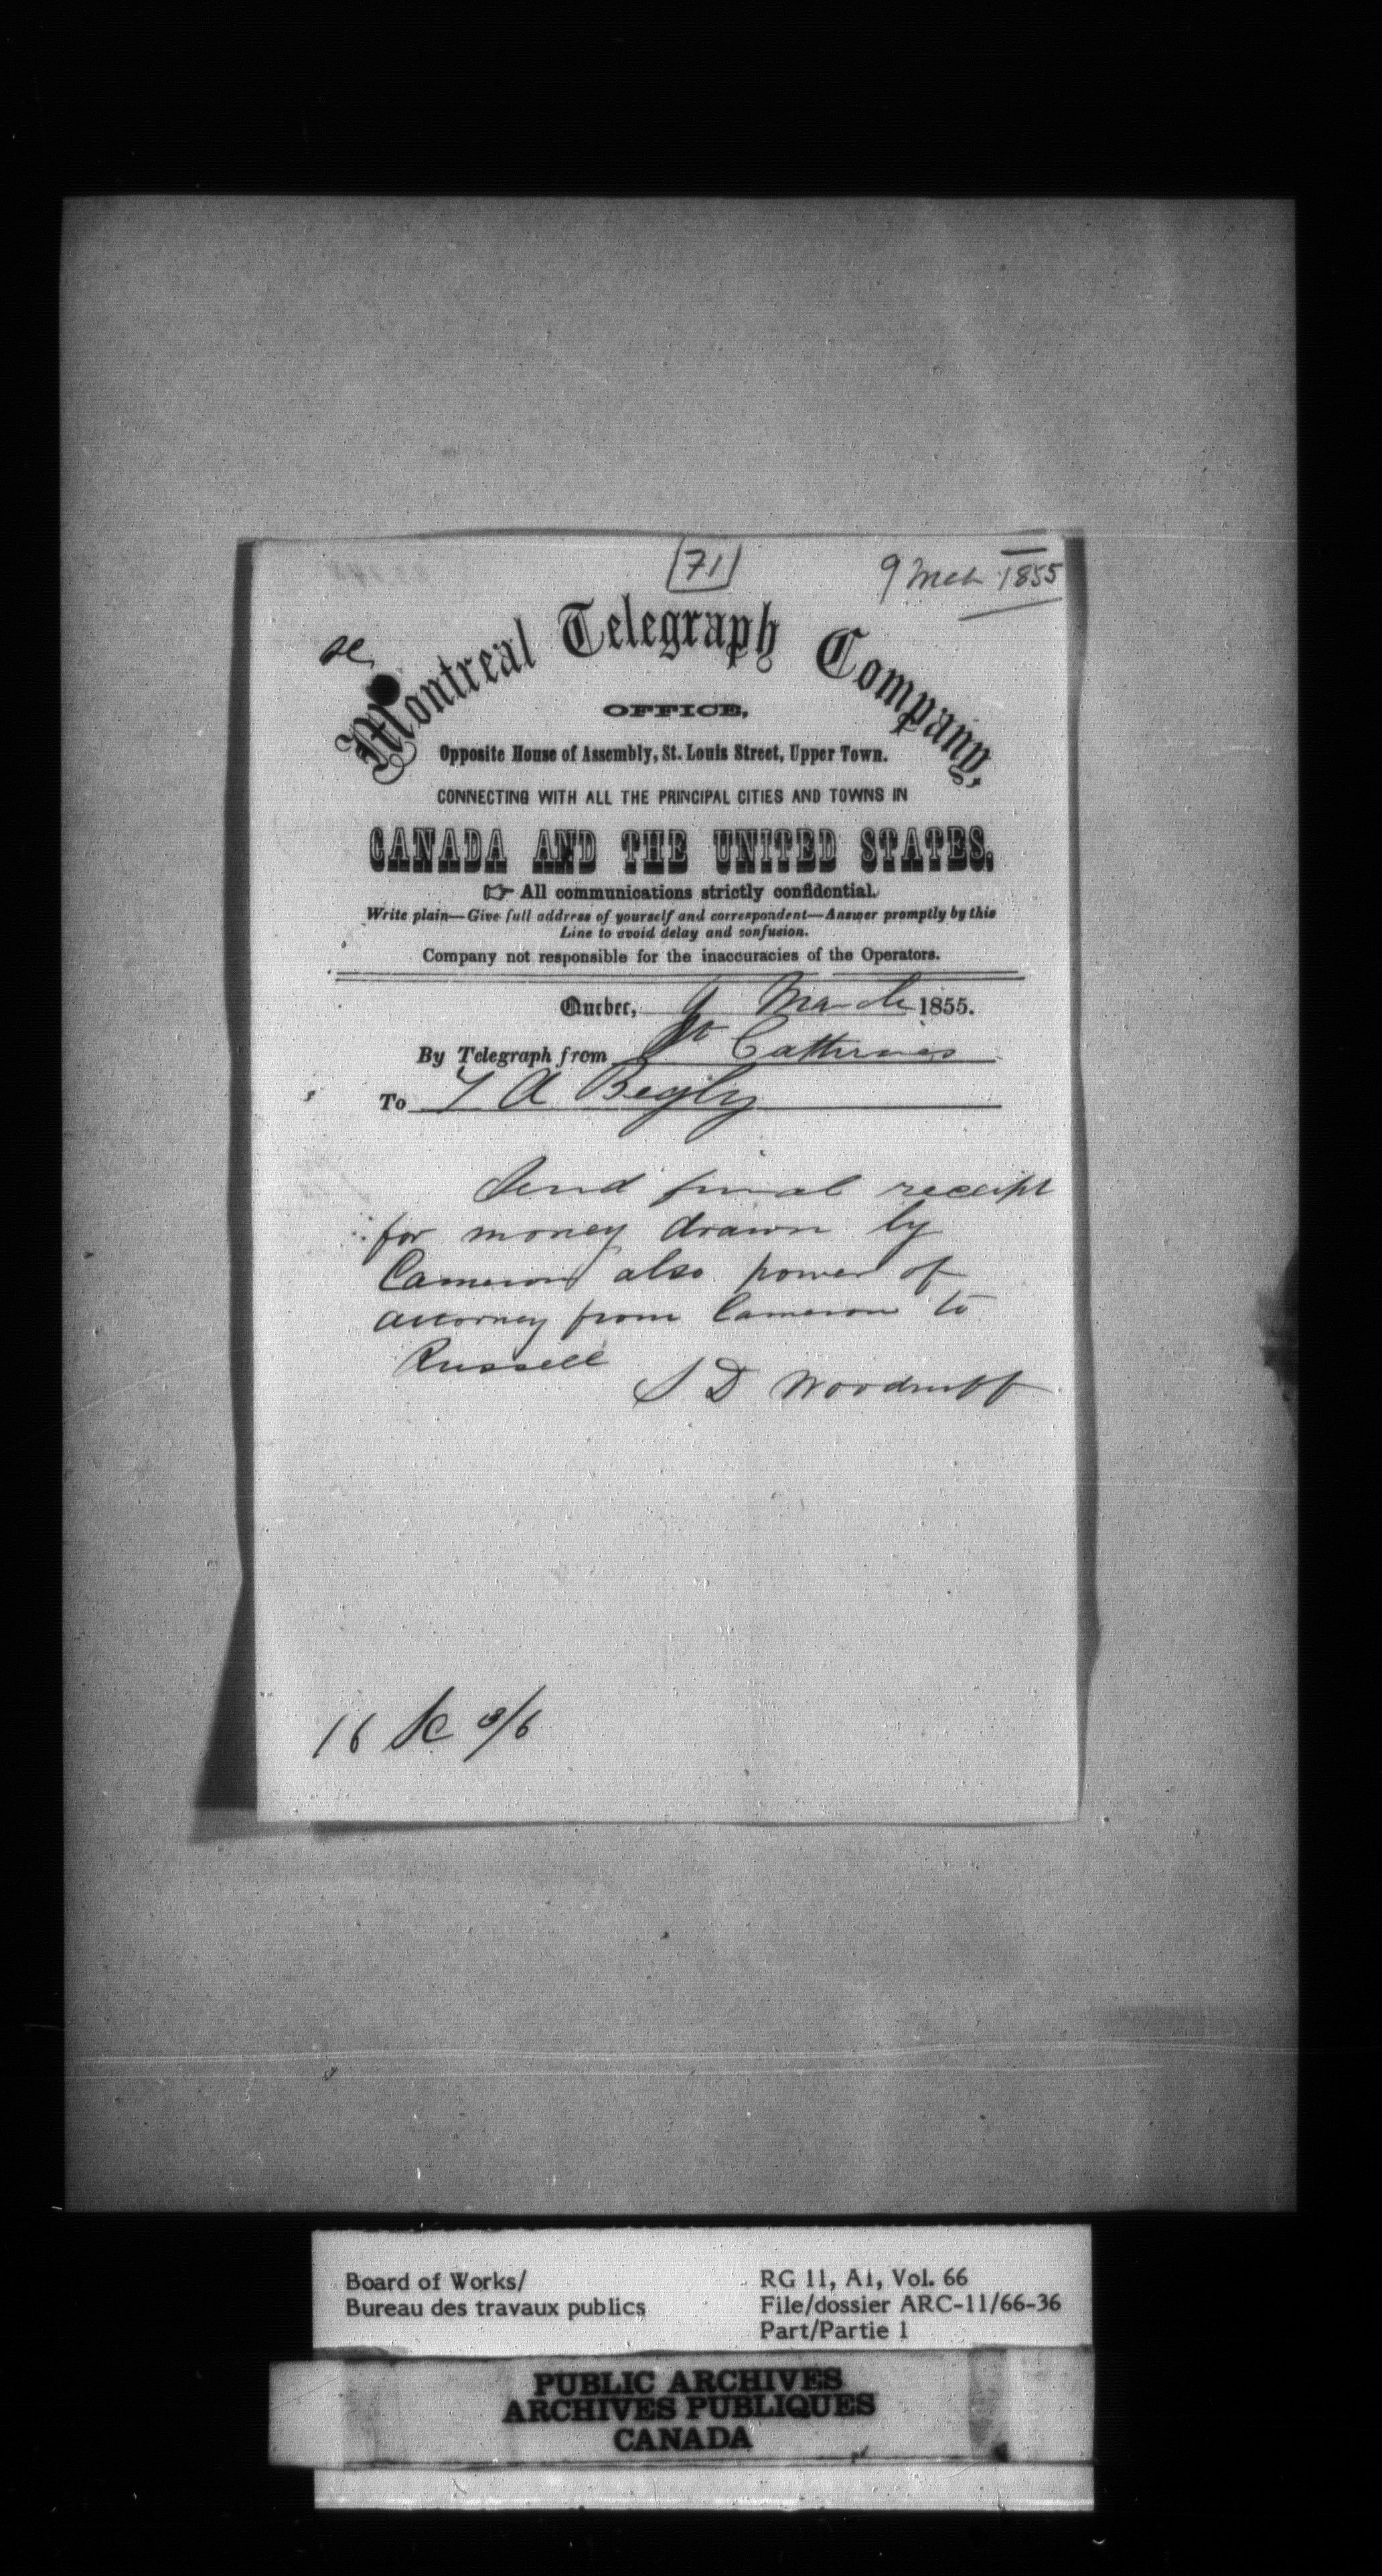 71
9 Mch 1855
Montreal Telegraph Company,
OFFICE,
Opposite House of Assembly, St. Louis Street, Upper Town.
CONNECTING WITH ALL THE PRINCIPAL CITIES AND TOWNS IN
CANADA AND THE UNITED STATES.
☞ All communications strictly confidential.
Write plain—Give full address of yourself and correspondent—Answer promptly by this
Line to avoid delay and confusion.
Company not responsible for the inaccuracies of the Operators.
Quebec, 9 March 1855.
By Telegraph from St Catherines
To T A Begly
Send final receipt
for money drawn by
Cameron also power of
attorney from Cameron to
Russell
S D Woodruff
16 3/6
Board of Works/
Bureau des travaux publics
RG 11, A1, Vol. 66
File/dossier ARC-11/66-36
Part/Partie 1
PUBLIC ARCHIVES
ARCHIVES PUBLIQUES
CANADA